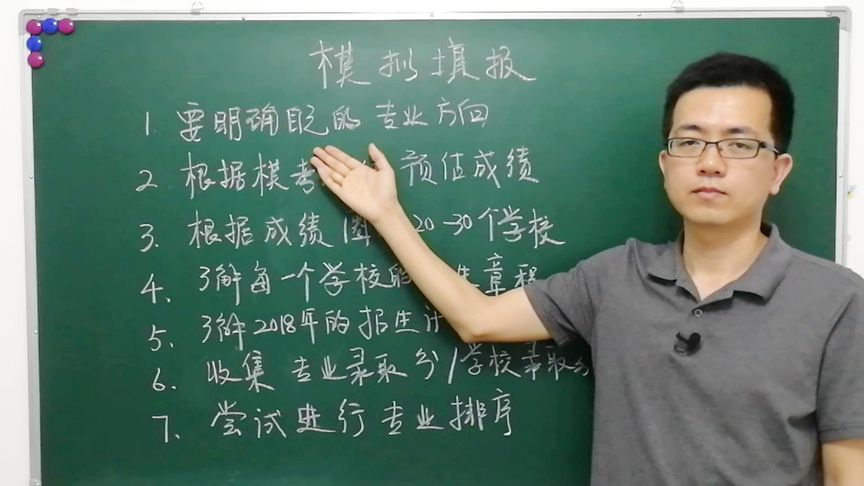 模拟填报
1. 要明确自己的专业方向
2. 根据模考 预估成绩
3. 根据成绩 20-30个学校
4、了解每一个学校的 生章程
5、了解2018年的招生计
6、收集专业录取分/学校录取分
7、尝试进行专业排序